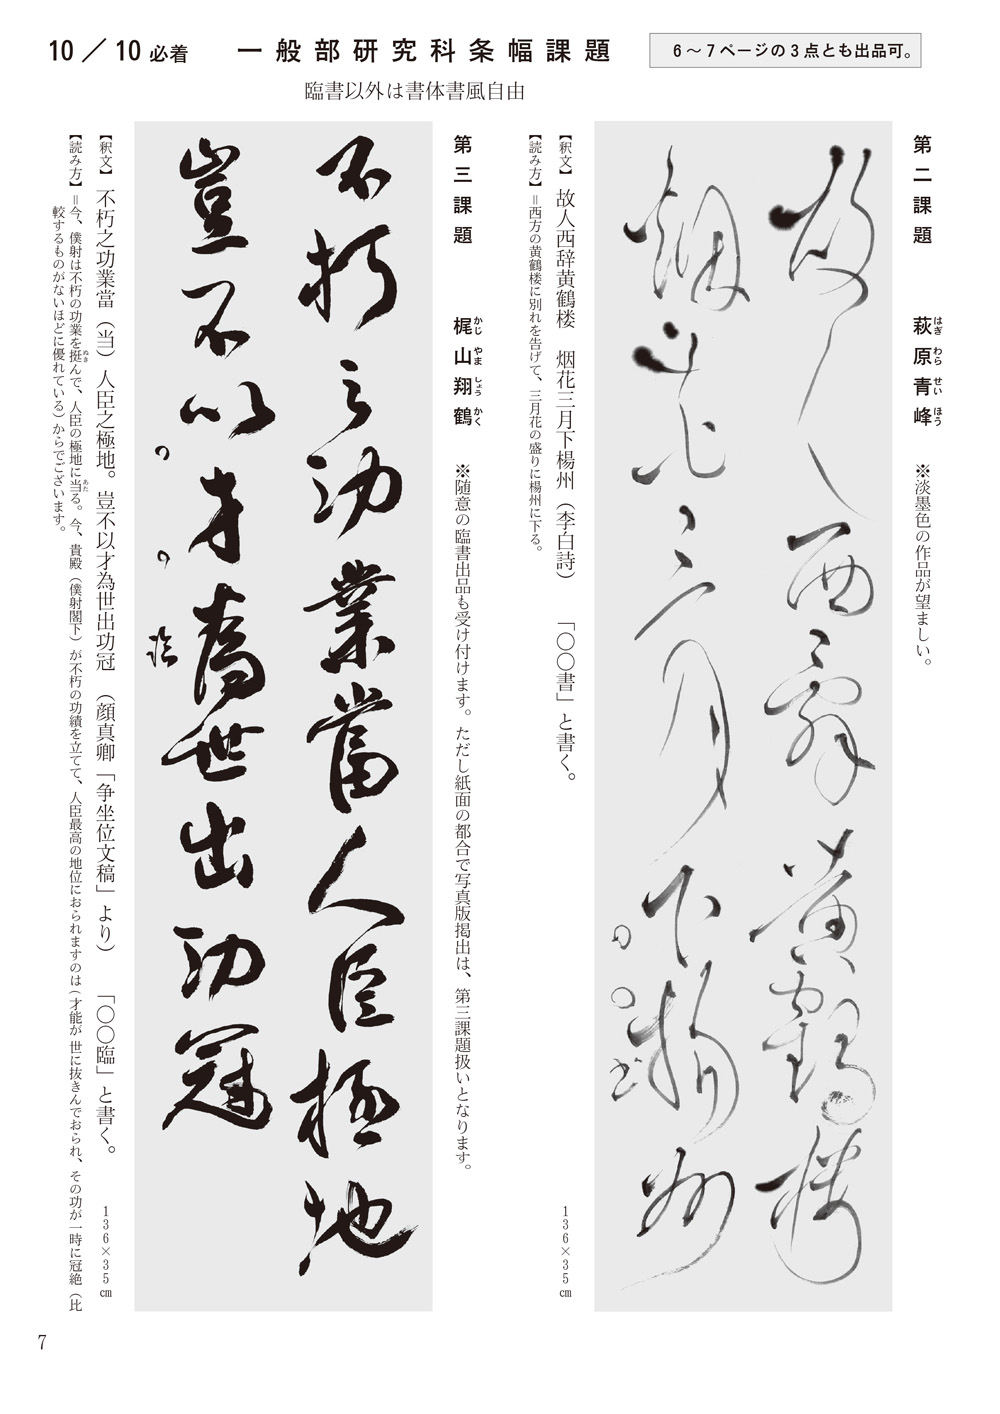 10／10必着　一般部研究科条幅課題
6～7ページの3点とも出品可。
臨書以外は書体書風自由
第二課題　萩原青峰　※淡墨色の作品が望ましい。
はぎ わら せい ほう
故人西辞黄鶴楼
烟花三月下楊州
〇〇書
【釈文】故人西辞黄鶴楼　烟花三月下楊州（李白詩）　「〇〇書」と書く。
136×35㎝
【読み方】＝西方の黄鶴楼に別れを告げて、三月花の盛りに楊州に下る。
第三課題　梶山翔鶴　※随意の臨書出品も受け付けます。ただし紙面の都合で写真版掲出は、第三課題扱いとなります。
かじ やま しょう かく
不朽之功業當人臣極地
豈不以才為世出功冠
〇〇臨
【釈文】不朽之功業當（当）人臣之極地。豈不以才為世出功冠　（顔真卿「争坐位文稿」より）　「〇〇臨」と書く。
136×35㎝
【読み方】＝今、僕射は不朽の功業を挺んで、人臣の極地に当る。今、貴殿（僕射閣下）が不朽の功績を立てて、人臣最高の地位におられますのは（才能が世に抜きんでおられ、その功が一時に冠絶（比
ぬき あた
較するものがないほどに優れている）からでございます。
7